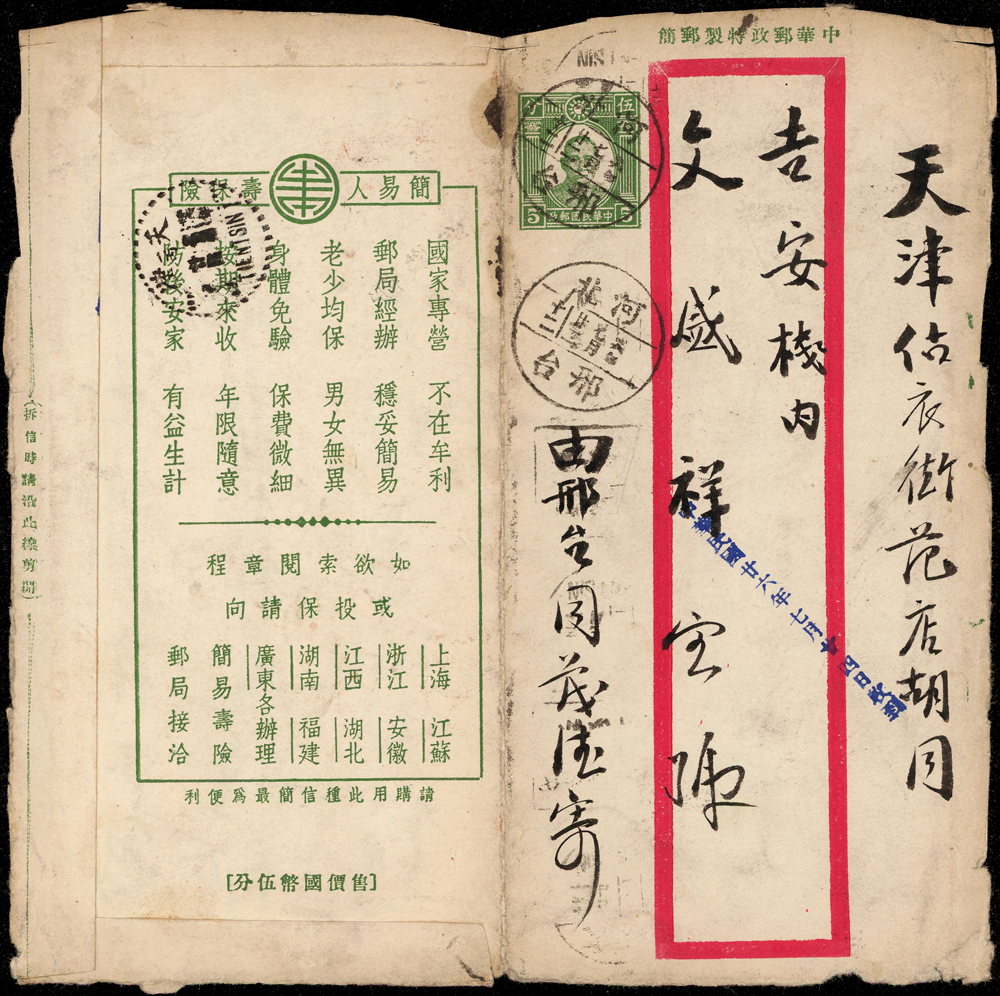 中華郵政特製郵簡
天津估衣街范店胡同
吉安棧内
文盛祥宝號
由邢台同茂隆寄
中華民國廿六年七月廿四日收到
伍分
5
中華民國郵政
5
河北
邢台
河北
十二
邢台
簡易人壽保險
國家專營 不在牟利
郵局經辦 穩妥簡易
老少均保 男女無異
身體免驗 保費微細
按期來收 年限隨意
防後安家 有益生計
如欲索閱章程
或投保請向
上海 江蘇
浙江 安徽
江西 湖北
湖南 福建
廣東各辦理
簡易壽險
郵局接洽
請購用此種信簡最為便利
[售價國幣伍分]
天津
TIENTSIN
(拆信時請沿此線剪開)